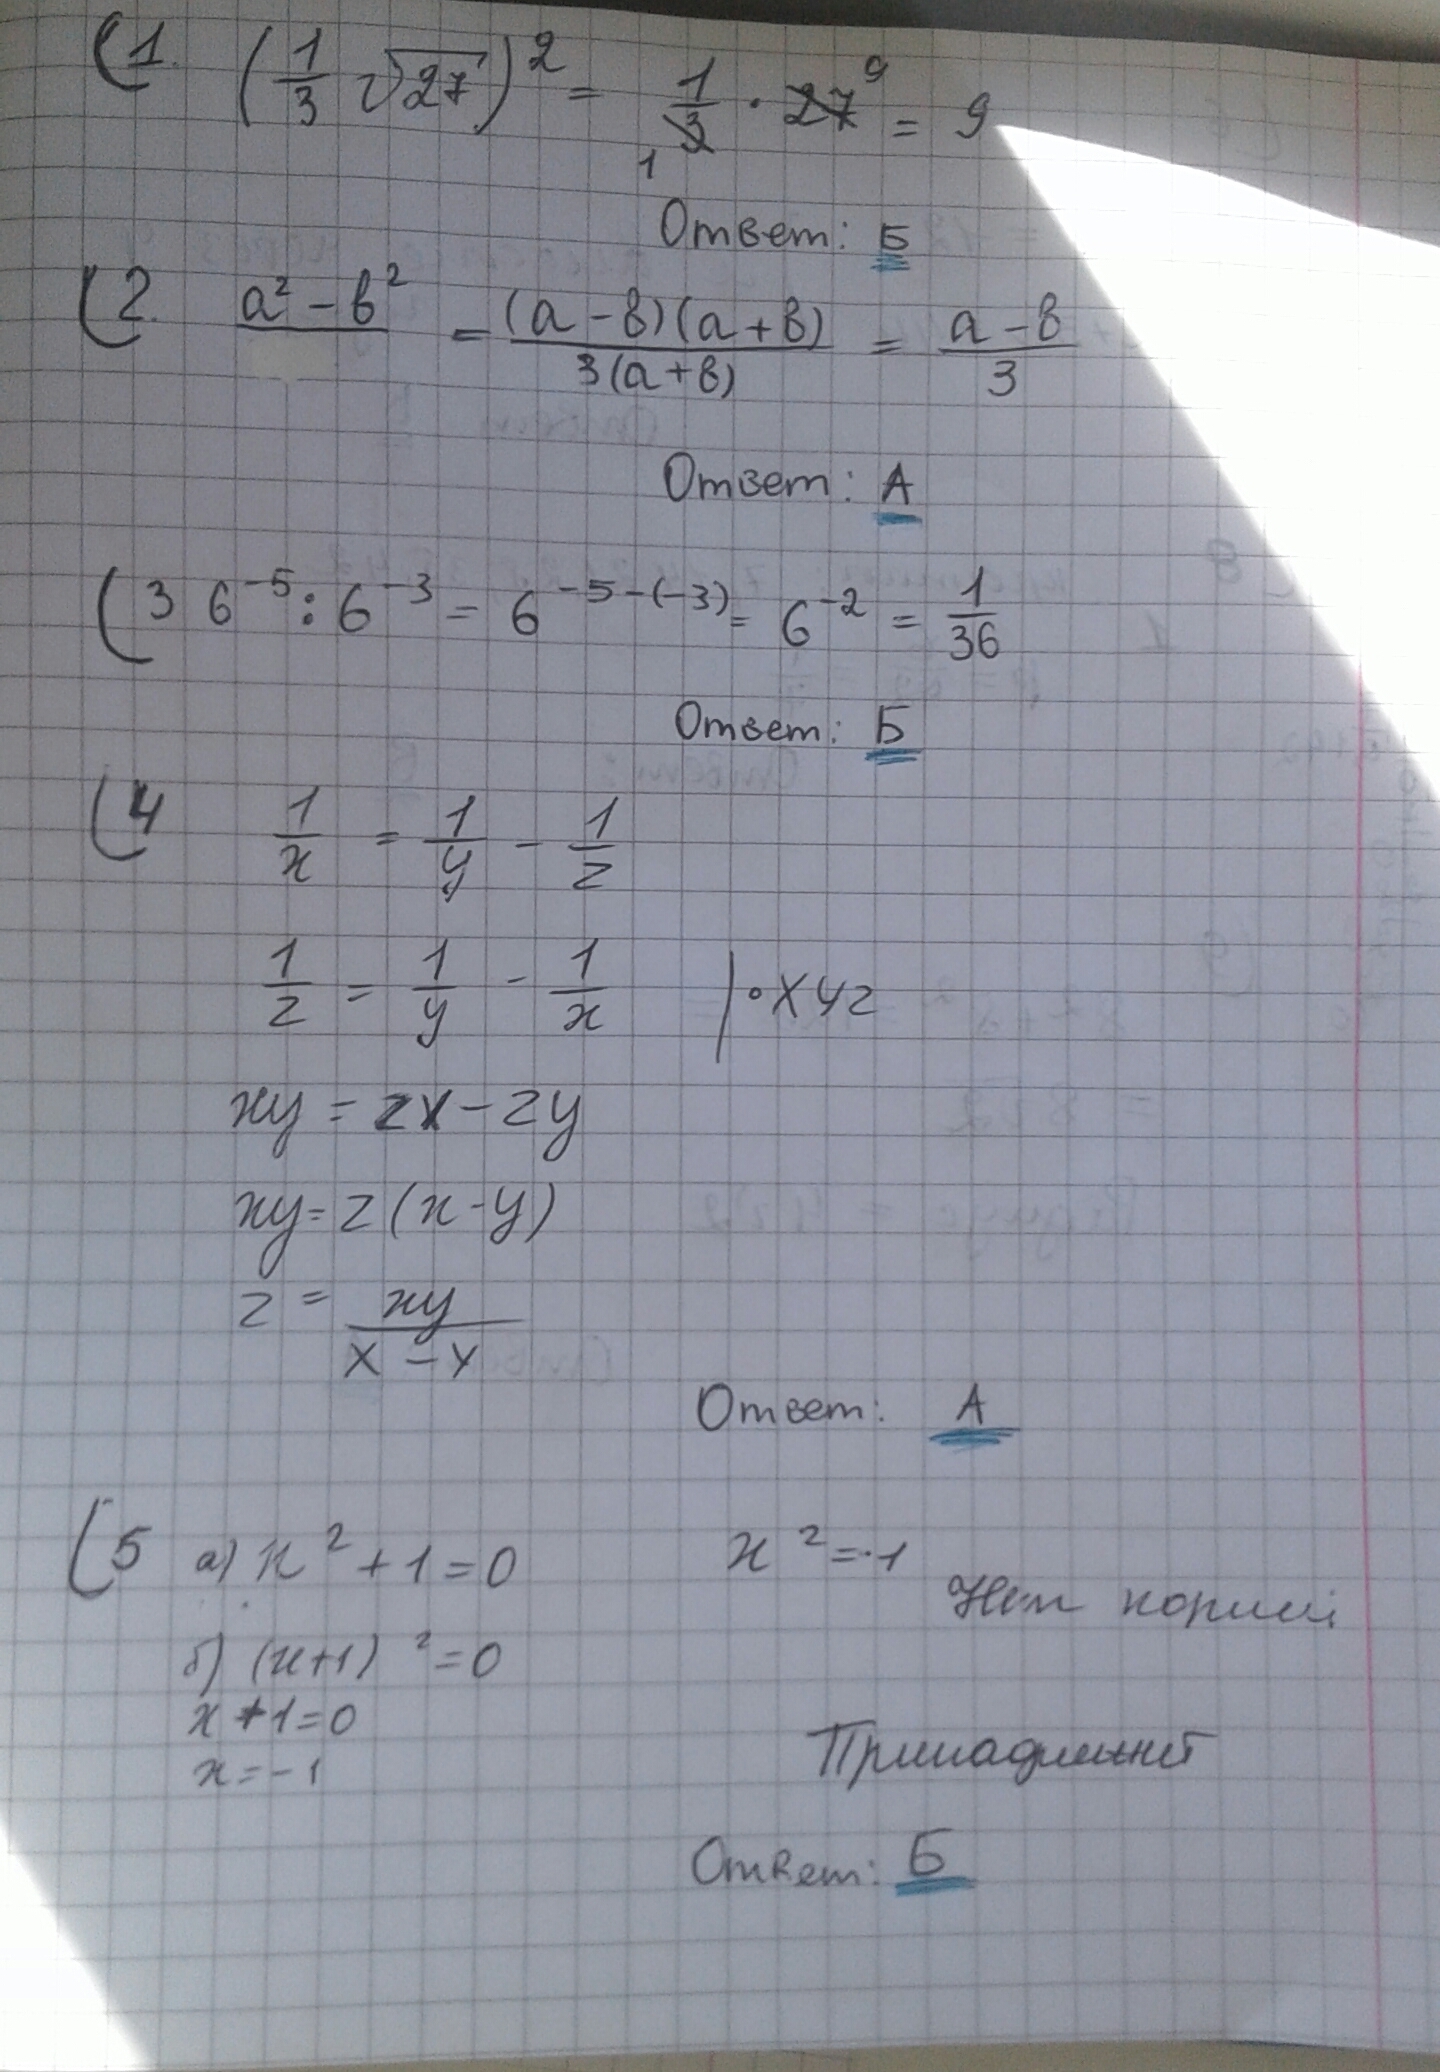 1. (1/3 √27)² = 1/3 · 27 9 = 9
1
Ответ: Б
2. a² - b² = (a - b)(a + b) / 3(a + b) = a - b / 3
Ответ: А
3 6⁻⁵ : 6⁻³ = 6⁻⁵⁻⁽⁻³⁾ = 6⁻² = 1/36
Ответ: Б
4 1/x = 1/y - 1/z
1/z = 1/y - 1/x | · xyz
xy = zx - zy
xy = z(x - y)
z = xy / x - y
Ответ: А
5 а) x² + 1 = 0 x² = -1
Нет корней
б) (x+1)² = 0
x + 1 = 0
x = -1
Принадлежит
Ответ: Б